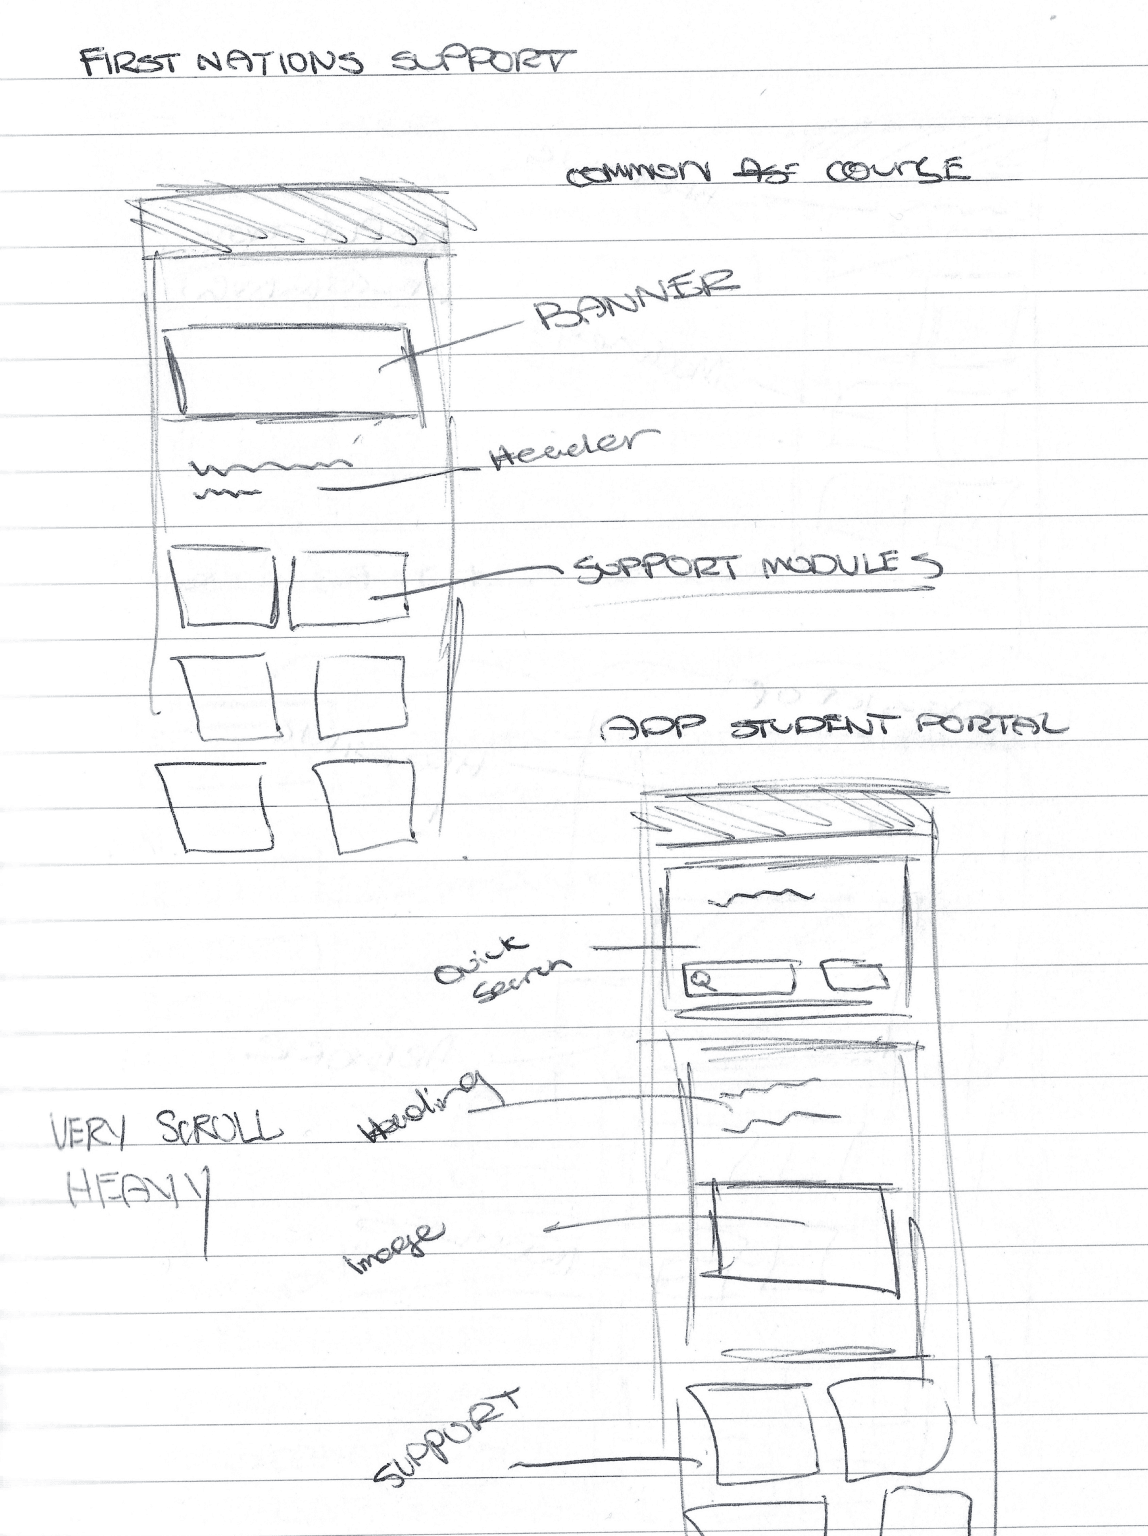 FIRST NATIONS SUPPORT
COMMON COURSE
BANNER
Header
SUPPORT MODULES
ADP STUDENT PORTAL
Quick
Search
Q
Heading
VERY SCROLL
HEAVY
Image
SUPPORT